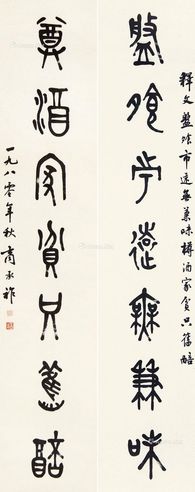 释文盘飧市远无兼味樽酒家贫只旧醅
盤飧市遠無兼味
尊酒家貧只舊醅
一九八零年秋商承祚